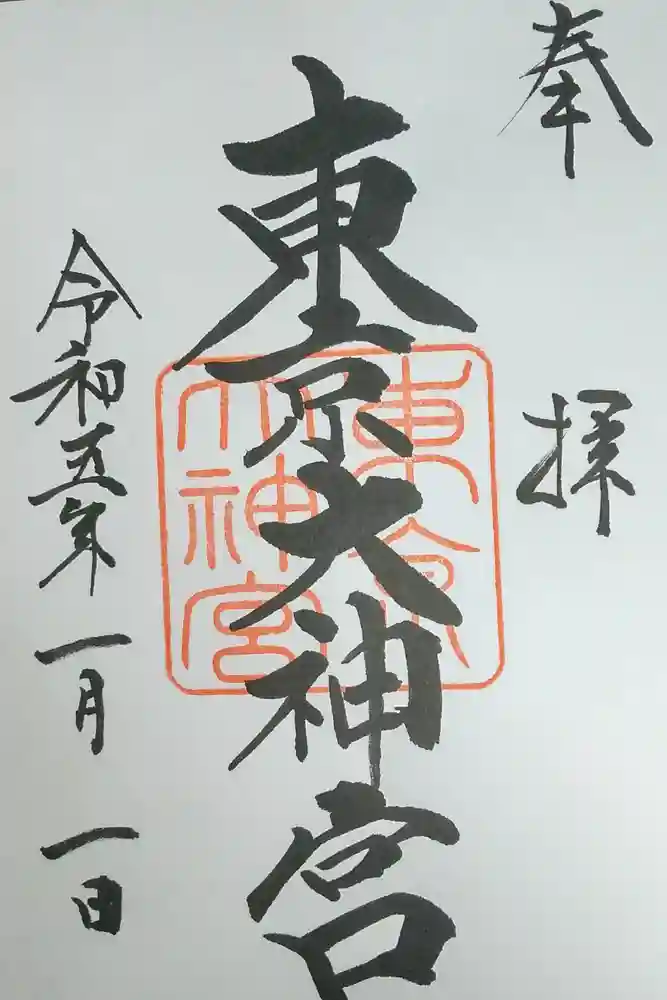 奉拝
東京大神宮
東京
大神宮
令和五年一月一日